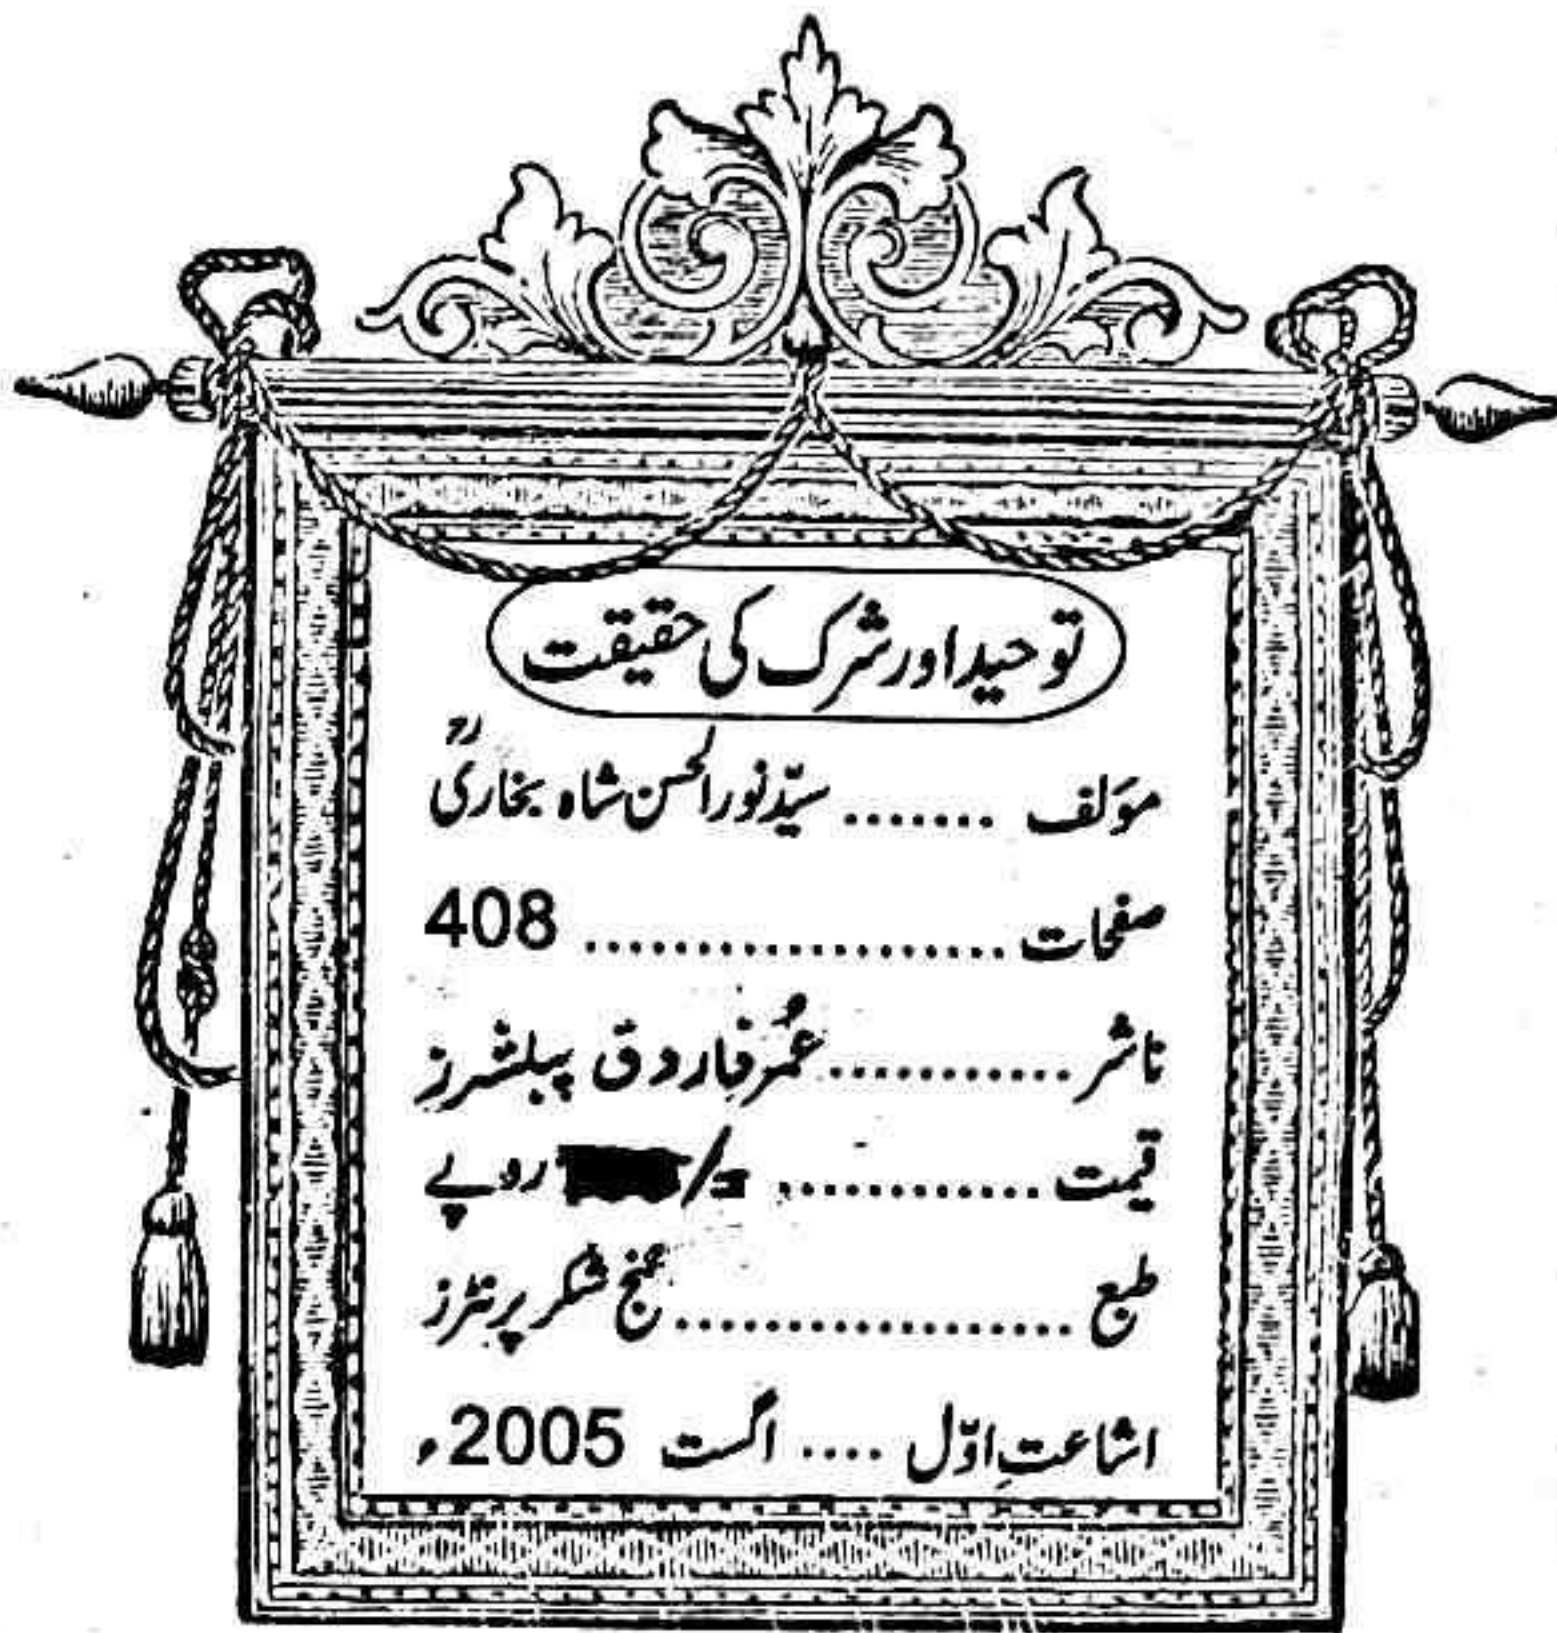 توحید اور شرک کی حقیقت
مؤلف ....... سیّد نور الحسن شاہ بخاریؒ
صفحات ................... 408
ناشر ........... عُمر فاروق پبلشرز
قیمت ............ =/ روپے
طبع .................. گنج شکر پرنٹرز
اشاعتِ اوّل .... اگست 2005ء